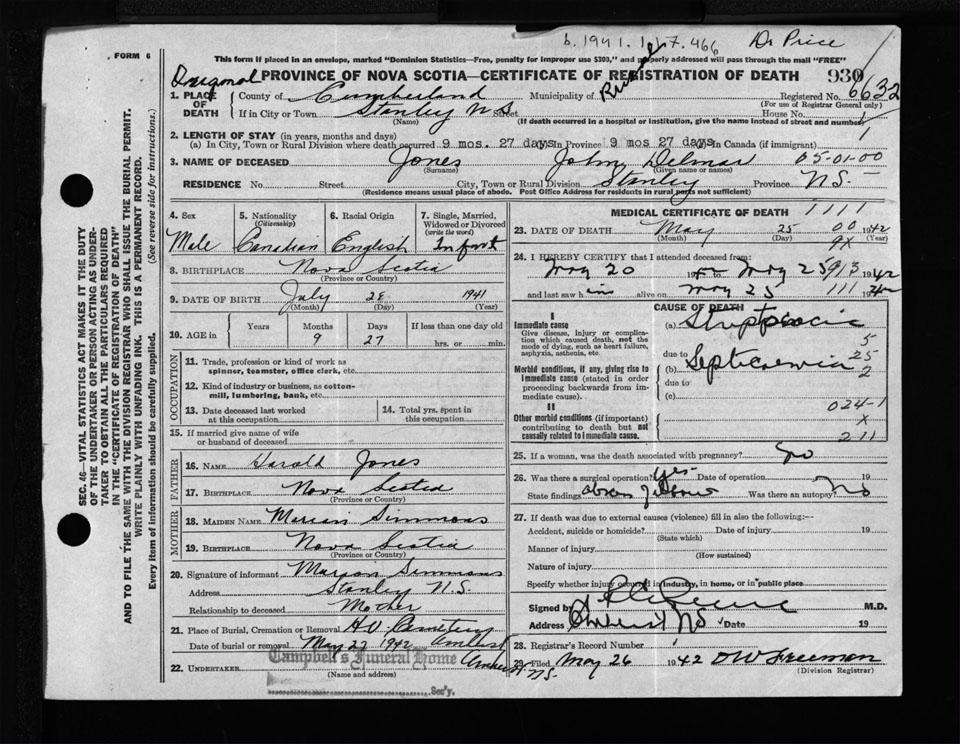 b. 1941. 117. 466 Dr Price
FORM 6
This form if placed in an envelope, marked "Dominion Statistics—Free, penalty for improper use $300," and properly addressed will pass through the mail "FREE"
PROVINCE OF NOVA SCOTIA—CERTIFICATE OF REGISTRATION OF DEATH 930
1. PLACE OF DEATH County of Cumberland Municipality of Registered No. 6632
(For use of Registrar General only)
If in City or Town Stanley N.S. Street House No.
(Name) (If death occurred in a hospital or institution, give the name instead of street and number)
2. LENGTH OF STAY (in years, months and days)
(a) In City, Town or Rural Division where death occurred 9 mos. 27 days In Province 9 mos 27 days In Canada (if immigrant)
3. NAME OF DECEASED Jones John Delmar 05-01-00
(Surname) (Given name or names)
RESIDENCE No. Street City, Town or Rural Division Stanley Province N.S.
(Residence means usual place of abode. Post Office Address for residents in rural parts not sufficient)
4. Sex Male
5. Nationality (Citizenship) Canadian
6. Racial Origin English
7. Single, Married, Widowed or Divorced (write the word) Infant
8. BIRTHPLACE Nova Scotia
(Province or Country)
9. DATE OF BIRTH July 28 1941
(Month) (Day) (Year)
10. AGE in Years Months 9 Days 27 If less than one day old hrs. or min.
OCCUPATION
11. Trade, profession or kind of work as spinner, teamster, office clerk, etc.
12. Kind of industry or business, as cotton-mill, lumbering, bank, etc.
13. Date deceased last worked at this occupation
14. Total yrs. spent in this occupation
15. If married give name of wife or husband of deceased
FATHER
16. NAME Harold Jones
17. BIRTHPLACE Nova Scotia
(Province or Country)
MOTHER
18. MAIDEN NAME Marian Simmons
19. BIRTHPLACE Nova Scotia
(Province or Country)
20. Signature of informant Marion Simmons
Address Stanley N.S.
Relationship to deceased Mother
21. Place of Burial, Cremation or Removal H.V. Cemetery Amherst
Date of burial or removal May 27 1942
22. UNDERTAKER Campbell's Funeral Home Amherst N.S.
(Name and address)
Sec'y.
MEDICAL CERTIFICATE OF DEATH 1111
23. DATE OF DEATH May 25 00 1942
(Month) (Day) 9X (Year)
24. I HEREBY CERTIFY that I attended deceased from:
May 20 19 to May 25 913 1942
and last saw him alive on May 25 111 1942
CAUSE OF DEATH
I
Immediate cause
Give disease, injury or complication which caused death, not the mode of dying, such as heart failure, asphyxia, asthenia, etc.
Morbid conditions, if any, giving rise to immediate cause (stated in order proceeding backwards from immediate cause).
II
Other morbid conditions (if important) contributing to death but not causally related to immediate cause.
(a) Streptococcic 5
due to 25
(b) Septicaemia 2
due to
(c)
024-1
X
211
25. If a woman, was the death associated with pregnancy? No
26. Was there a surgical operation? Yes Date of operation 19
State findings Was there an autopsy? No
27. If death was due to external causes (violence) fill in also the following:—
Accident, suicide or homicide? Date of injury 19
(State which)
Manner of injury
(How sustained)
Nature of injury
Specify whether injury occurred in industry, in home, or in public place
Signed by M.D.
Address Amherst NS Date 19
28. Registrar's Record Number
29. Filed May 26 1942 DW Freeman
(Division Registrar)
SEC. 46—VITAL STATISTICS ACT MAKES IT THE DUTY
OF THE UNDERTAKER OR PERSON ACTING AS UNDER-
TAKER TO OBTAIN ALL THE PARTICULARS REQUIRED
IN THE "CERTIFICATE OF REGISTRATION OF DEATH"
AND TO FILE THE SAME WITH THE DIVISION REGISTRAR WHO SHALL ISSUE THE BURIAL PERMIT.
WRITE PLAINLY WITH UNFADING INK. THIS IS A PERMANENT RECORD.
Every item of information should be carefully supplied. (See reverse side for instructions.)